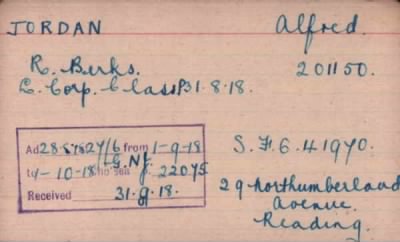 JORDAN Alfred.
R. Berks. 201150.
L. Corp. Class P 31.8.18.
Ad 28.8.18 27/6 from 1-9-18
G.N. S.F.6.41970.
to -10-18 no sea 22075
Received 31.8.18.
29 Northumberland
Avenue.
Reading.